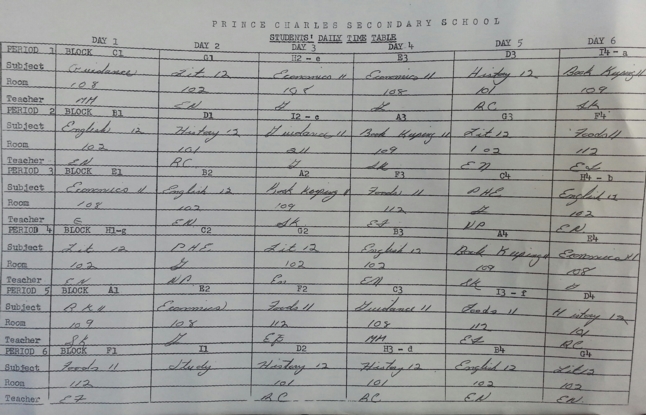 PRINCE CHARLES SECONDARY SCHOOL
STUDENTS' DAILY TIME TABLE
DAY 1 DAY 2 DAY 3 DAY 4 DAY 5 DAY 6
PERIOD 1 BLOCK C1 G1 H2 - e E3 D3 I4 - a
Subject Guidance Lit 12 Economics 11 Economics 11 History 12 Book Keeping 11
Room 108 102 108 108 101 109
Teacher MM EN RC SK
PERIOD 2 BLOCK B1 D1 I2 - c A3 G3 F4
Subject English 12 History 12 Guidance 11 Book Keeping 11 Lit 12 Foods 11
Room 102 101 211 109 102 112
Teacher EN RC SK EN EF
PERIOD 3 BLOCK E1 B2 A2 F3 C4 H4 - b
Subject Economics 11 English 12 Book Keeping Foods 11 PHE English 12
Room 108 102 109 112 102
Teacher EN SK EF NP EN
PERIOD 4 BLOCK H1-g C2 G2 B3 A4 E4
Subject Lit 12 PHE Lit 12 English 12 Book Keeping Economics 11
Room 102 102 102 109 108
Teacher EN NP En EN SK
PERIOD 5 BLOCK A1 E2 F2 C3 I3 - f D4
Subject Economics Foods 11 Guidance 11 Foods 11 History 12
Room 109 108 112 108 112 101
Teacher SK EF MM EF RC
PERIOD 6 BLOCK F1 I1 D2 H3 - d B4 G4
Subject Foods 11 Study History 12 History 12 English 12 Lit 12
Room 112 101 101 102 102
Teacher EF RC RC EN EN